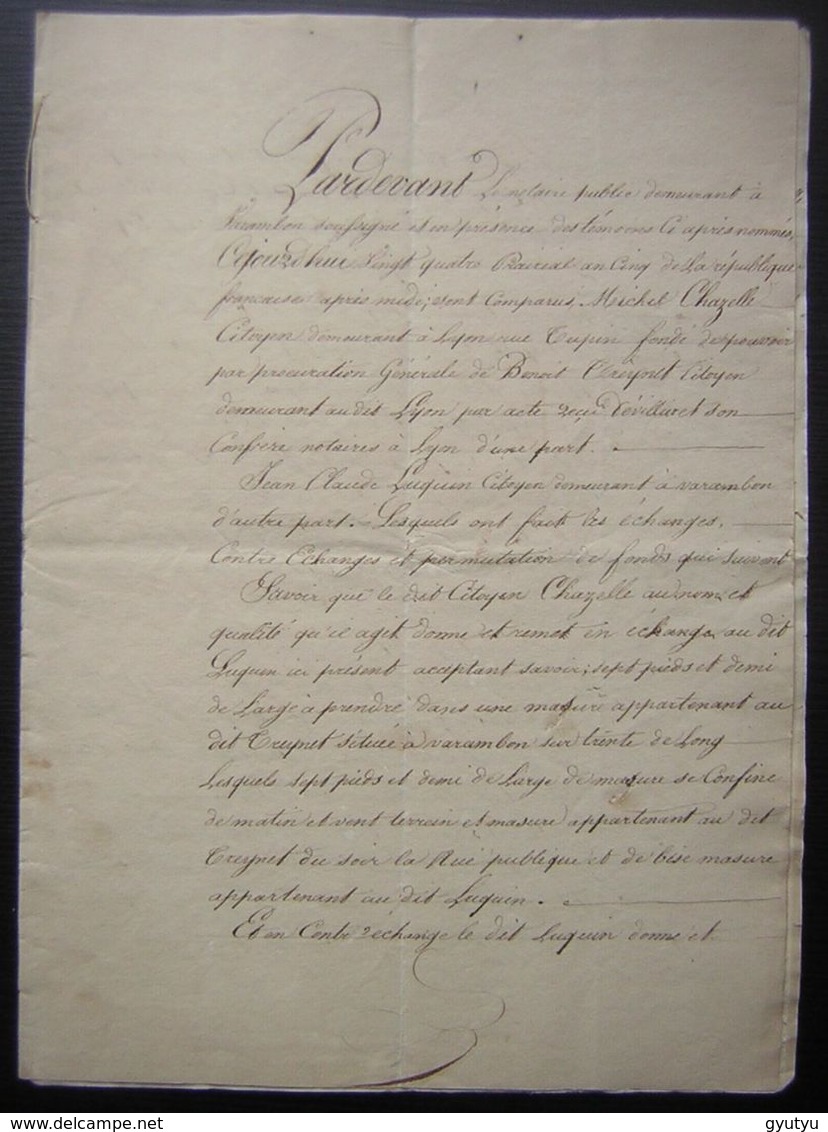 Pardevant Le notaire public demeurant à
Varambon soussigné et en présence des témoins Ci après nommés,
Cejourd'hui Vingt quatre Prairial an Cinq de La république
française après midi; sont Comparus, Michel Chazelle
Citoyen demeurant à Lyon rue Tupin fondé de pouvoir
par procuration Générale de Benoit Treynet Citoyen
demeurant au dit Lyon par acte reçu et son
Confrère notaires à Lyon d'une part.
Jean Claude Luquin Citoyen demeurant à varambon
d'autre part. Lesquels ont fait les échanges,
Contre Echanges et permutation de fonds qui suivent
Savoir que le dit Citoyen Chazelle au nom et
qualité qu'il agit donne et remet en échange au dit
Luquin ici présent acceptant savoir; sept pieds et demi
de Large à prendre dans une masure appartenant au
dit Treynet située à varambon sur trente de Long
Lesquels sept pieds et demi de Large de masure se Confine
de matin et vent terrein et masure appartenant au dit
Treynet du soir la Rue publique et de bise masure
appartenant au dit Luquin.
Et en Contr'échange le dit Luquin donne et
delcampe.net
gyutyu